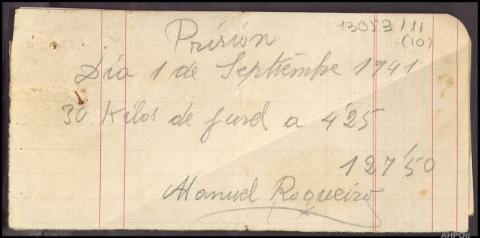 13053/11
(10)
Prisión
Día 1 de Septiembre 1941
30 Kilos de jurel a 4'25
127'50
Manuel Roqueiro
AHPOu